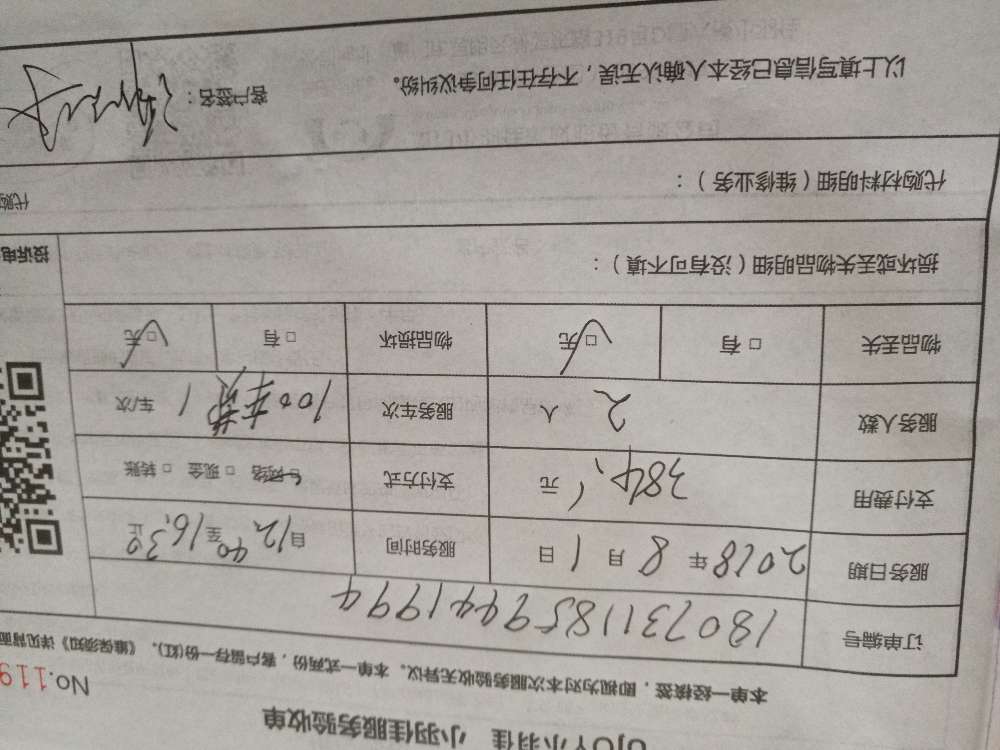 小羽佳 小羽佳服务验收单
No.119
本单一经核签，即视为对本次服务验收无异议。本单一式两份，客户留存一份(红)。《维保须知》详见背面
订单编号 1807311859441994
服务日期 2018 年 8 月 1 日 服务时间: 自 12 40 至 16 30 止
支付费用 384 元 支付方式 □ 网络 □ 现金 □ 转账
服务人数 2 人 服务车次 100车费 1 车/次
物品丢失 □ 有 □ 无 物品损坏 □ 有 □ 无
损坏或丢失物品明细（没有可不填）：
投诉电
代购材料明细（维修业务）：
代购
以上填写信息已经本人确认无误，不存在任何争议纠纷。 客户签名：